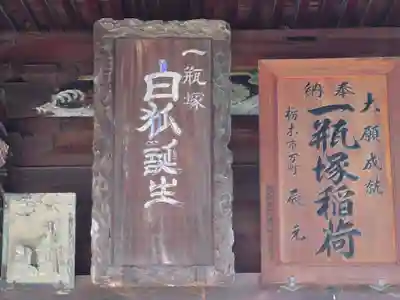 一瓶塚
白狐誕生
奉納
大願成就
一瓶塚稲荷
栃木市万町